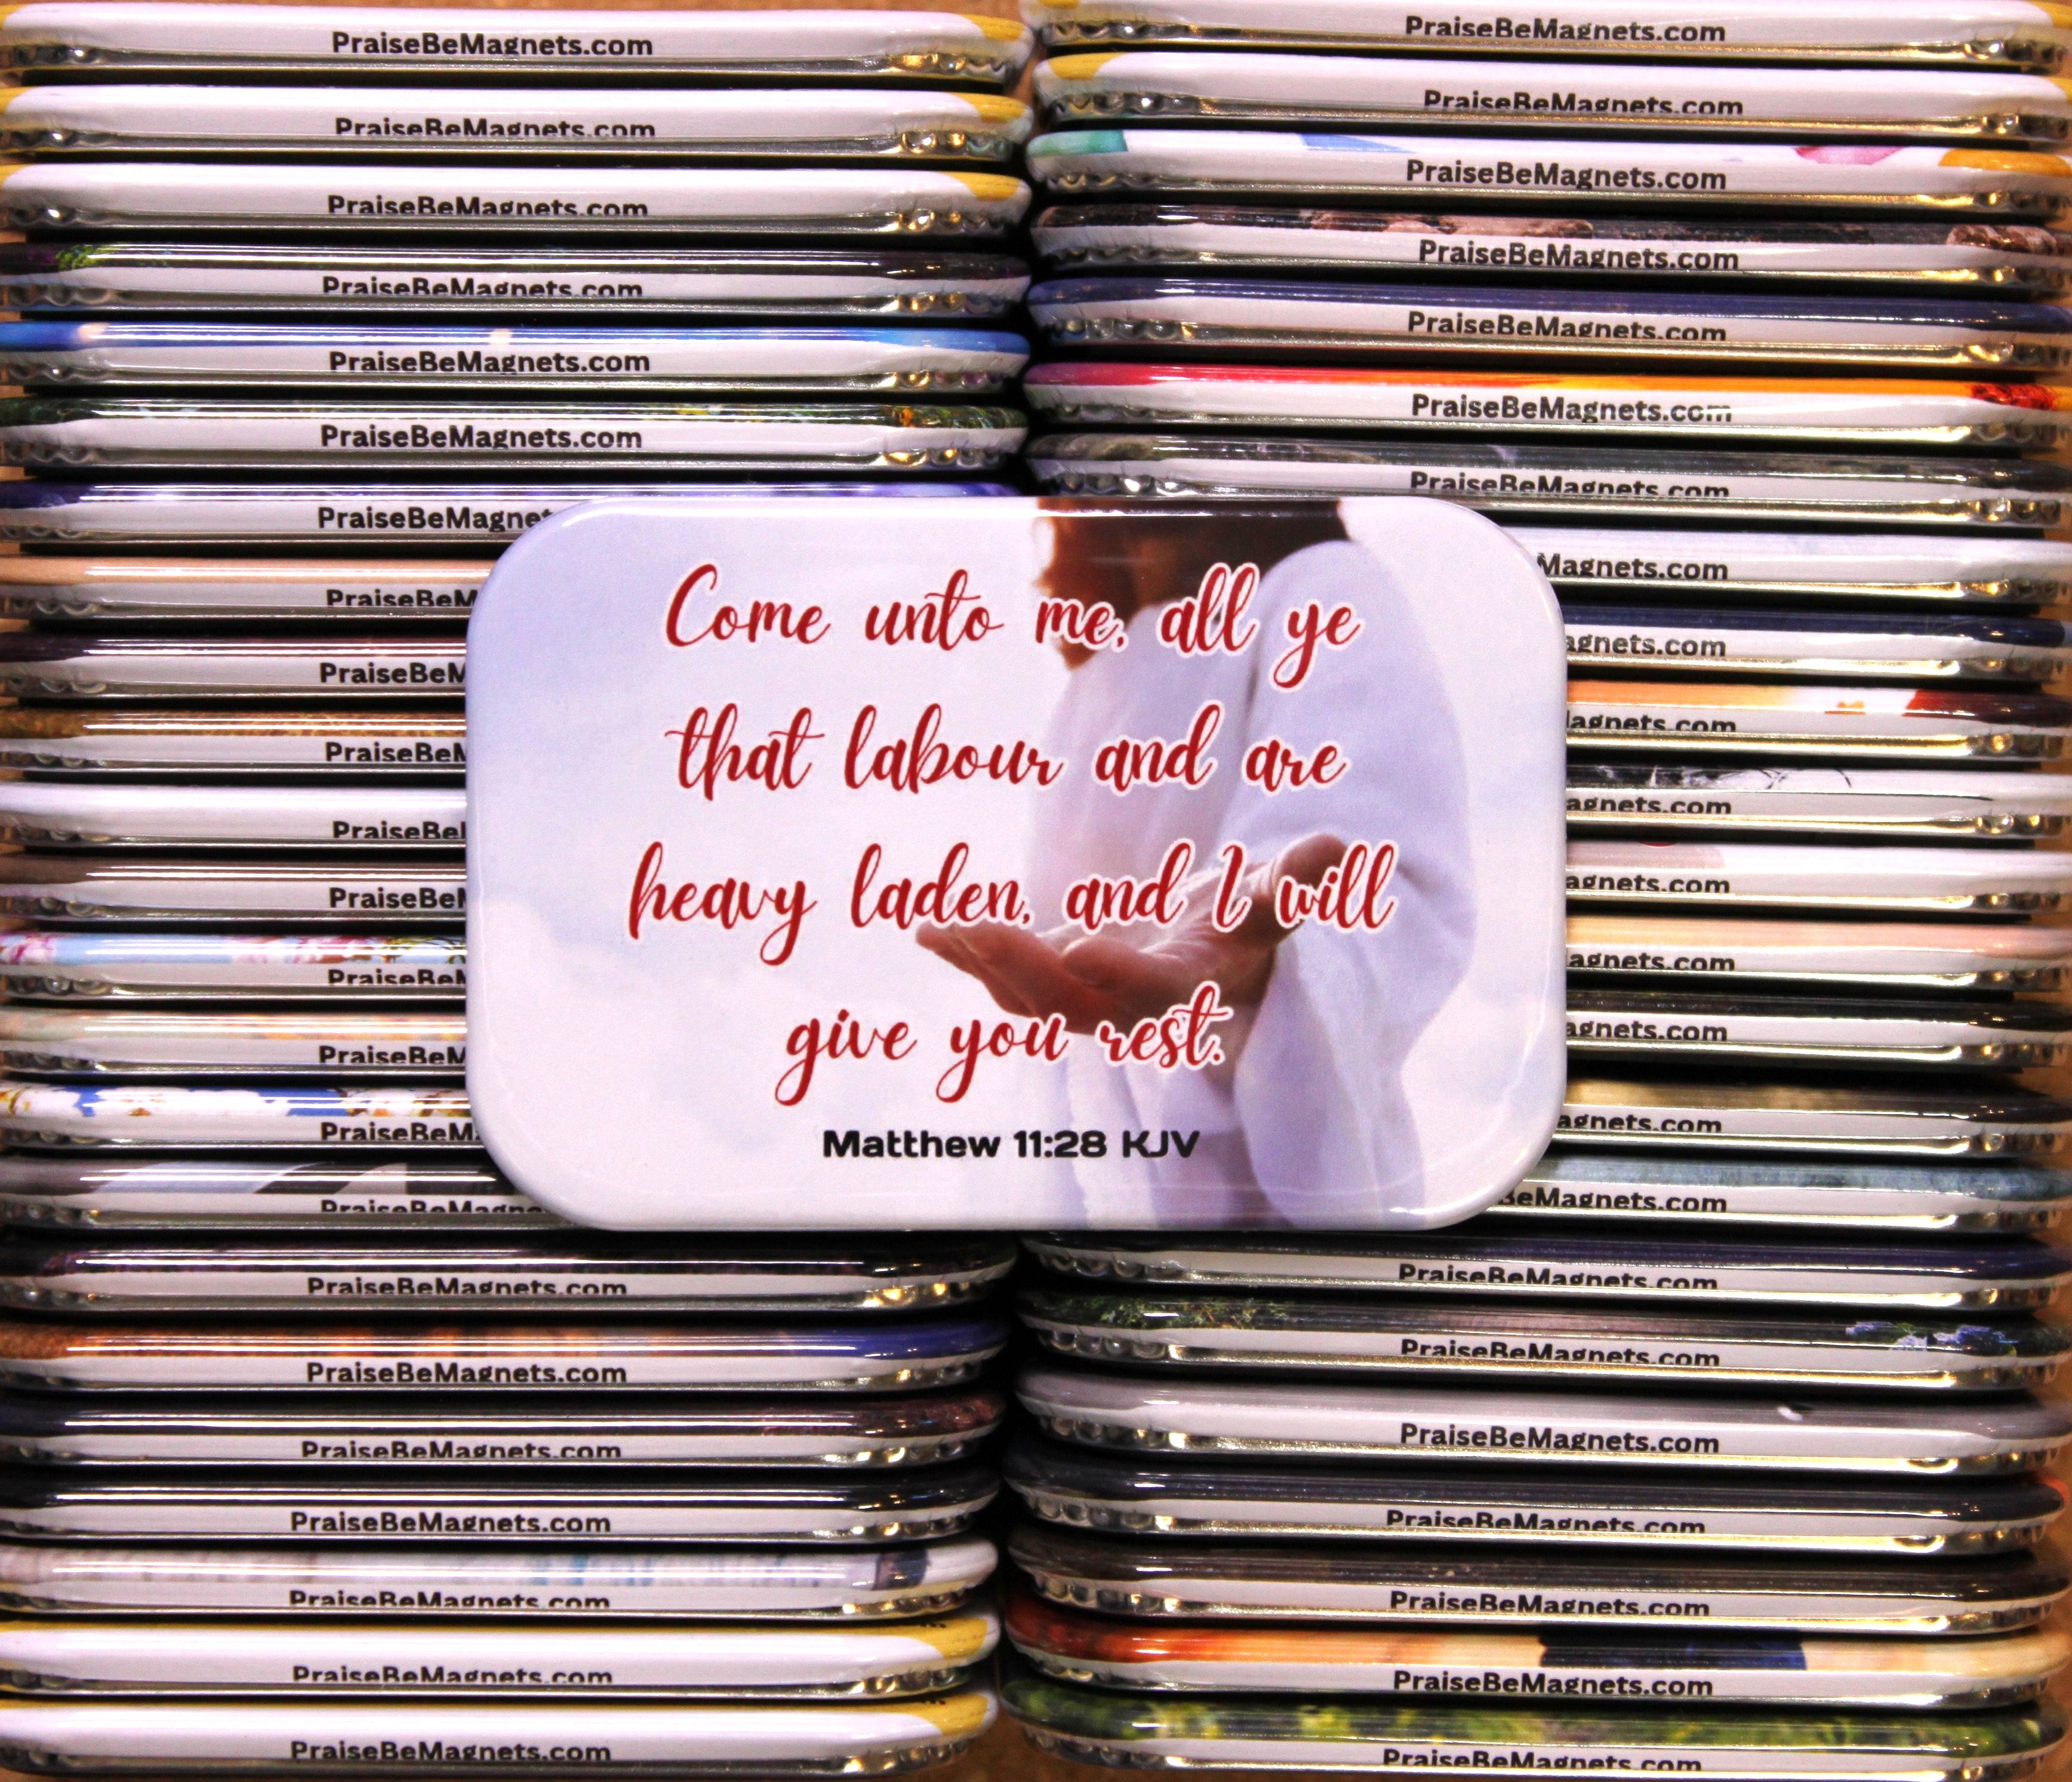 PraiseBeMagnets.com
PraiseBeMagnets.com
PraiseBeMagnets.com
PraiseBeMagnets.com
PraiseBeMagnets.com
PraiseBeMagnets.com
PraiseBeMagnet
PraiseBeM
PraiseBeM
PraiseBeM
PraiseBe
PraiseBeM
PraiseBeM
PraiseBeM
PraiseBeM
PraiseBeMagne
PraiseBeMagnets.com
PraiseBeMagnets.com
PraiseBeMagnets.com
PraiseBeMagnets.com
PraiseBeMagnets.com
PraiseBeMagnets.com
PraiseBeMagnets.com
Come unto me, all ye
that labour and are
heavy laden, and I will
give you rest.
Matthew 11:28 KJV
PraiseBeMagnets.com
PraiseBeMagnets.com
PraiseBeMagnets.com
PraiseBeMagnets.com
PraiseBeMagnets.com
PraiseBeMagnets.com
PraiseBeMagnets.com
Magnets.com
agnets.com
agnets.com
agnets.com
agnets.com
agnets.com
agnets.com
agnets.com
BeMagnets.com
PraiseBeMagnets.com
PraiseBeMagnets.com
PraiseBeMagnets.com
PraiseBeMagnets.com
PraiseBeMagnets.com
PraiseBeMagnets.com
PraiseBeMagnets.com